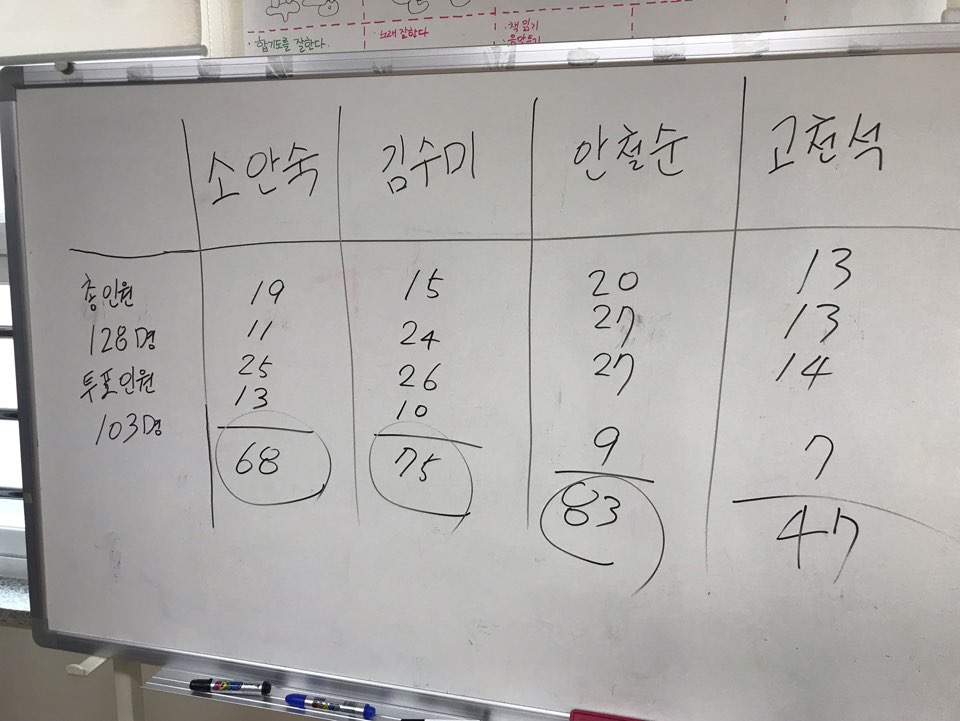 ·합기도를 잘한다.
노래 잘한다
·책 읽기
소안숙 김수미 안철순 고천석
총인원 19 15 20 13
128명 11 24 27 13
투표인원 25 26 27 14
103명 13 10 9 7
68 75 83 47